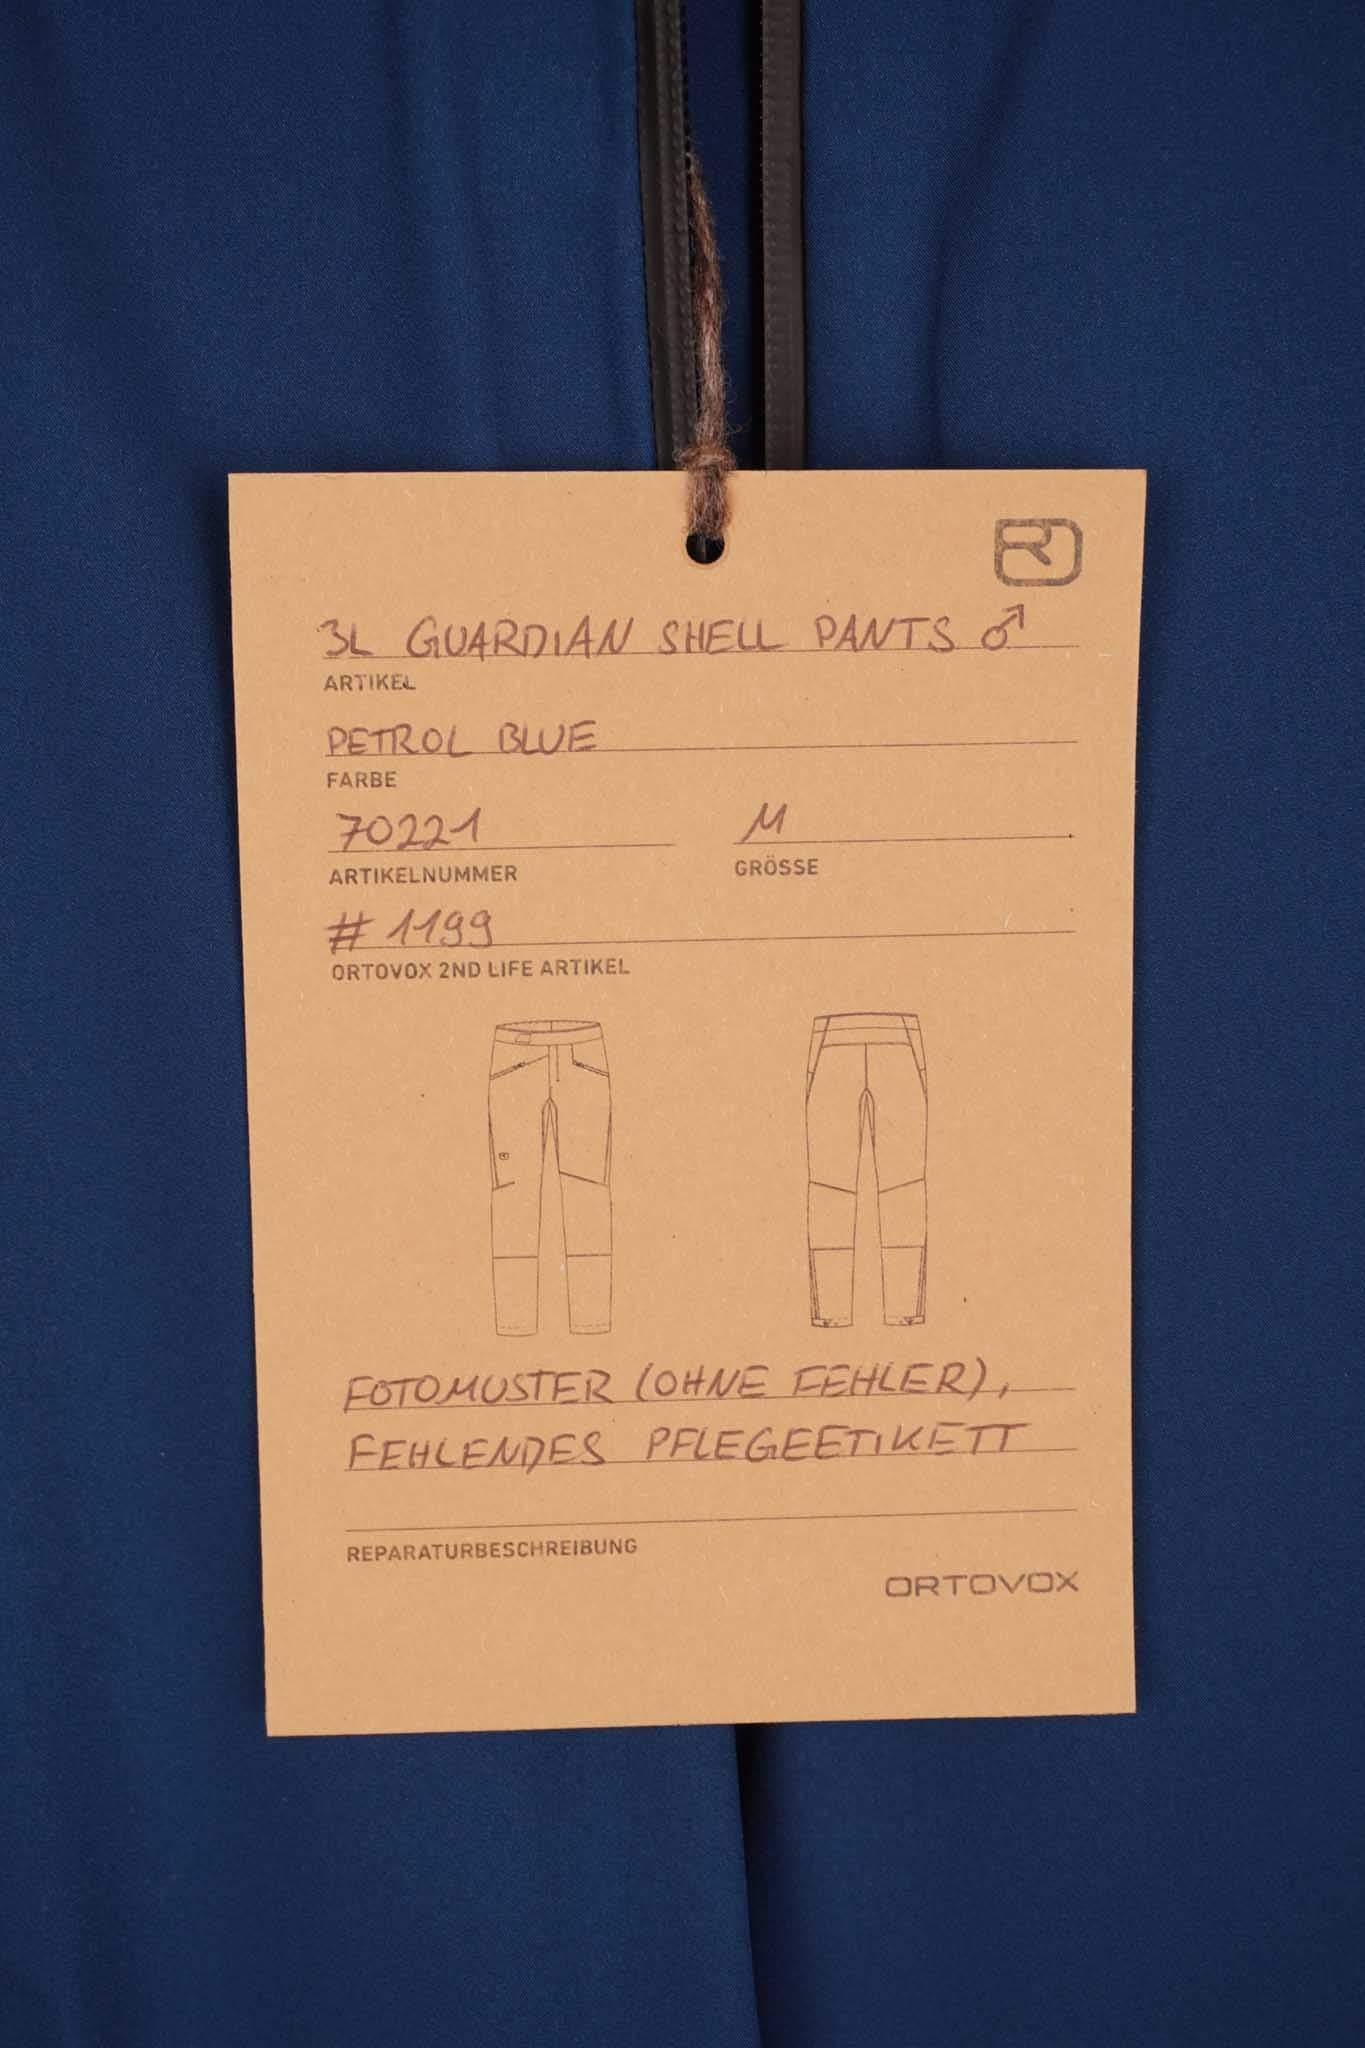 3L GUARDIAN SHELL PANTS ♂
ARTIKEL
PETROL BLUE
FARBE
70221 M
ARTIKELNUMMER GRÖSSE
# 1199
ORTOVOX 2ND LIFE ARTIKEL
FOTOMUSTER (OHNE FEHLER),
FEHLENDES PFLEGEETIKETT
REPARATURBESCHREIBUNG
ORTOVOX